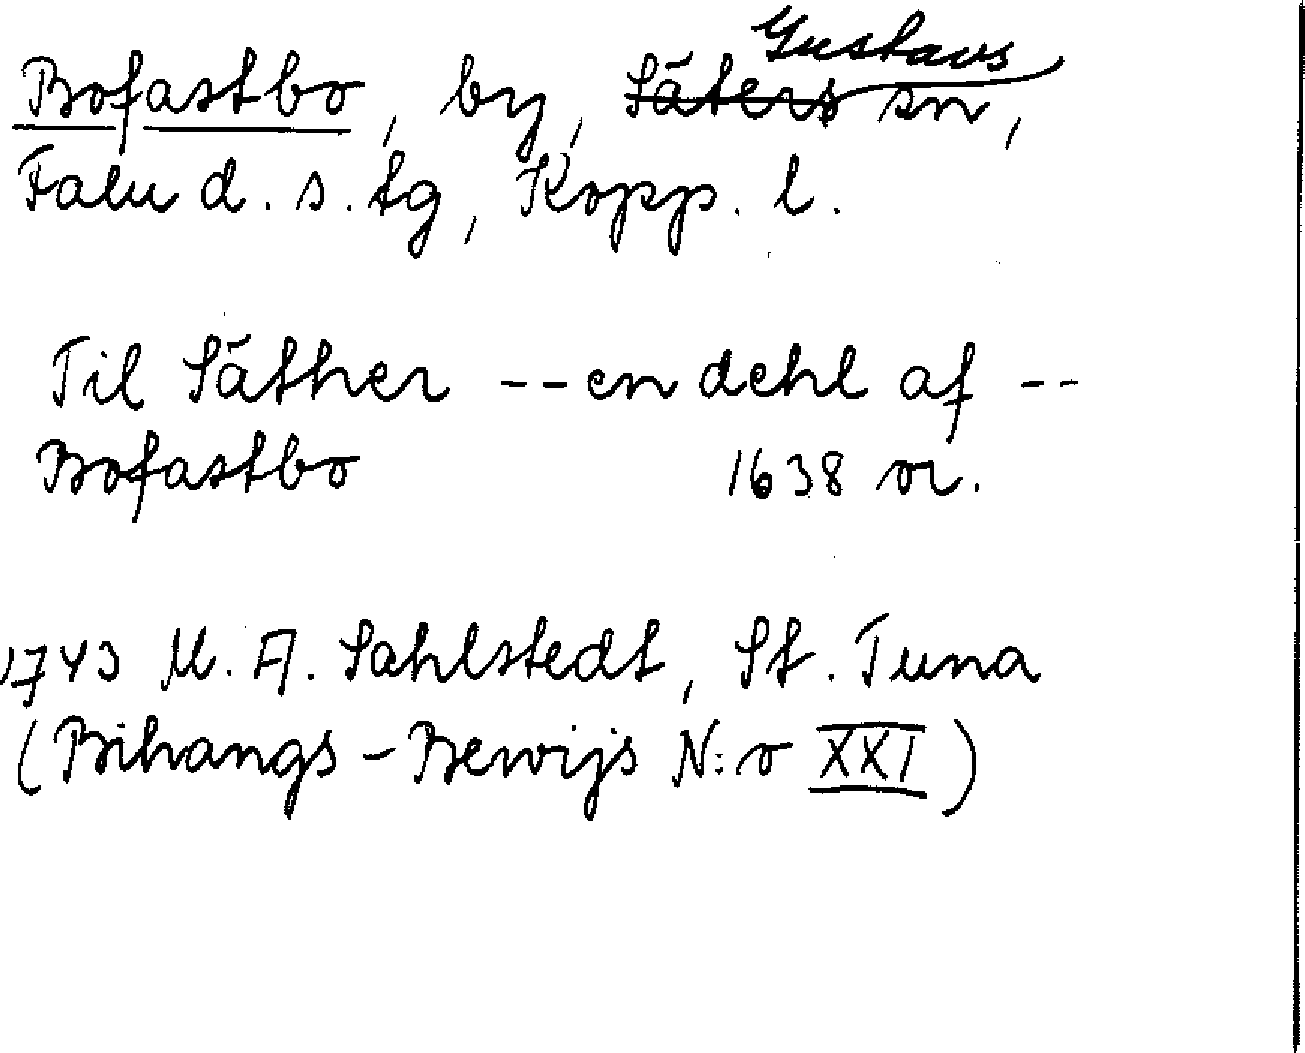 Gustavs
Bofastbo, by, Säters sn,
Falu d. s. tg, Kopp. l.
Til Säther -- en dehl af --
Bofastbo 1638 or.
1743 M. A. Sahlstedt, St. Tuna
(Bihangs - Bewijs N:o XXI)